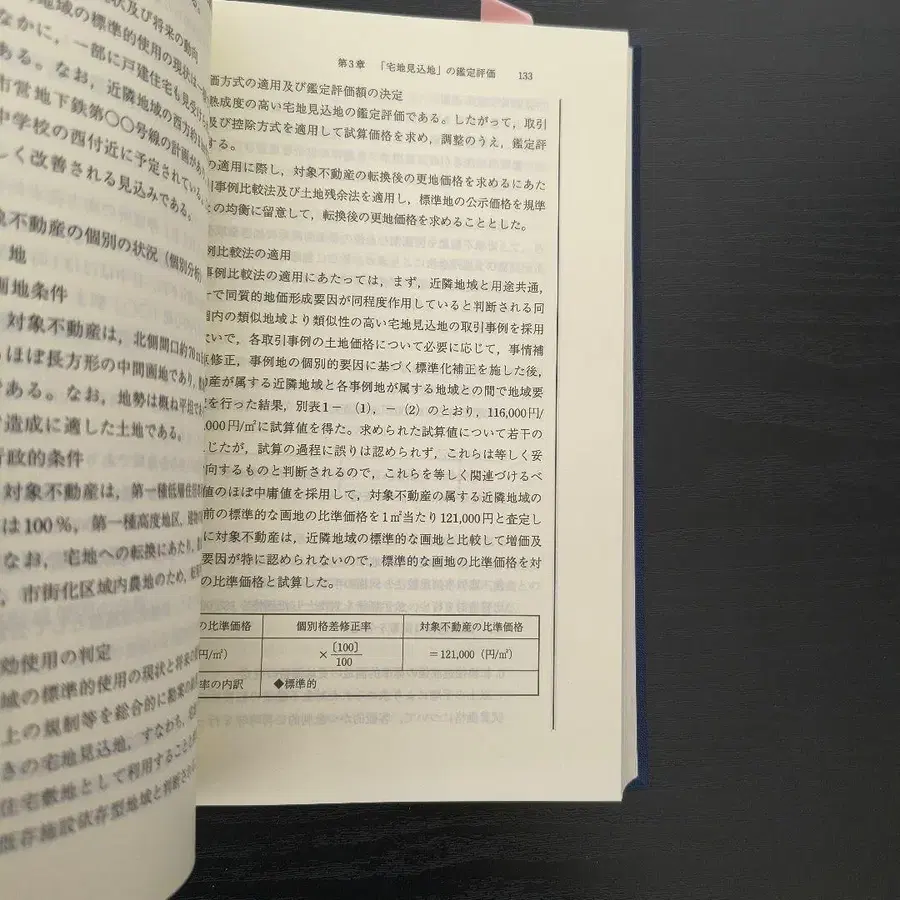 状及び将来の動向
地域の標準的使用の現状は一
なかに，一部に戸建住宅も見受け
ある。なお，近隣地域の西方約
市営地下鉄第〇〇号線の計画があ
中学校の西付近に予定されている。
しく改善される見込みである。
象不動産の個別の状況（個別分析）
地
画地条件
対象不動産は，北側間口約70m
ほぼ長方形の中間画地であり，
である。なお，地勢は概ね平坦で
造成に適した土地である。
行政的条件
対象不動産は，第一種低層住
は100％，第一種高度地区，
なお，宅地への転換にあたり，
，市街化区域内農地のため，
効使用の判定
域の標準的使用の現状と将来の
上の規制等を総合的に勘案の
きの宅地見込地，すなわち，
住宅敷地として利用すること
既存施設依存型地域と判断され
第3章　「宅地見込地」の鑑定評価　133
価方式の適用及び鑑定評価額の決定
熟成度の高い宅地見込地の鑑定評価である。したがって，取引
及び控除方式を適用して試算価格を求め，調整のうえ，鑑定評
する。
の適用に際し，対象不動産の転換後の更地価格を求めるにあた
引事例比較法及び土地残余法を適用し，標準地の公示価格を規準
との均衡に留意して，転換後の更地価格を求めることとした。
例比較法の適用
事例比較法の適用にあたっては，まず，近隣地域と用途共通，
で同質的地価形成要因が同程度作用していると判断される同
圏内の類似地域より類似性の高い宅地見込地の取引事例を採用
次いで，各取引事例の土地価格について必要に応じて，事情補
点修正，事例地の個別的要因に基づく標準化補正を施した後，
産が属する近隣地域と各事例地が属する地域との間で地域要
を行った結果，別表1－（1），－（2）のとおり，116,000円/
,000円/㎡に試算値を得た。求められた試算値について若干の
じたが，試算の過程に誤りは認められず，これらは等しく妥
向するものと判断されるので，これらを等しく関連づけるべ
値のほぼ中庸値を採用して，対象不動産の属する近隣地域の
前の標準的な画地の比準価格を1㎡当たり121,000円と査定し
に対象不動産は，近隣地域の標準的な画地と比較して増価及
要因が特に認められないので，標準的な画地の比準価格を対
の比準価格と試算した。
の比準価格　個別格差修正率　対象不動産の比準価格
円/㎡）　×［100］/100　＝121,000（円/㎡）
率の内訳　◆標準的